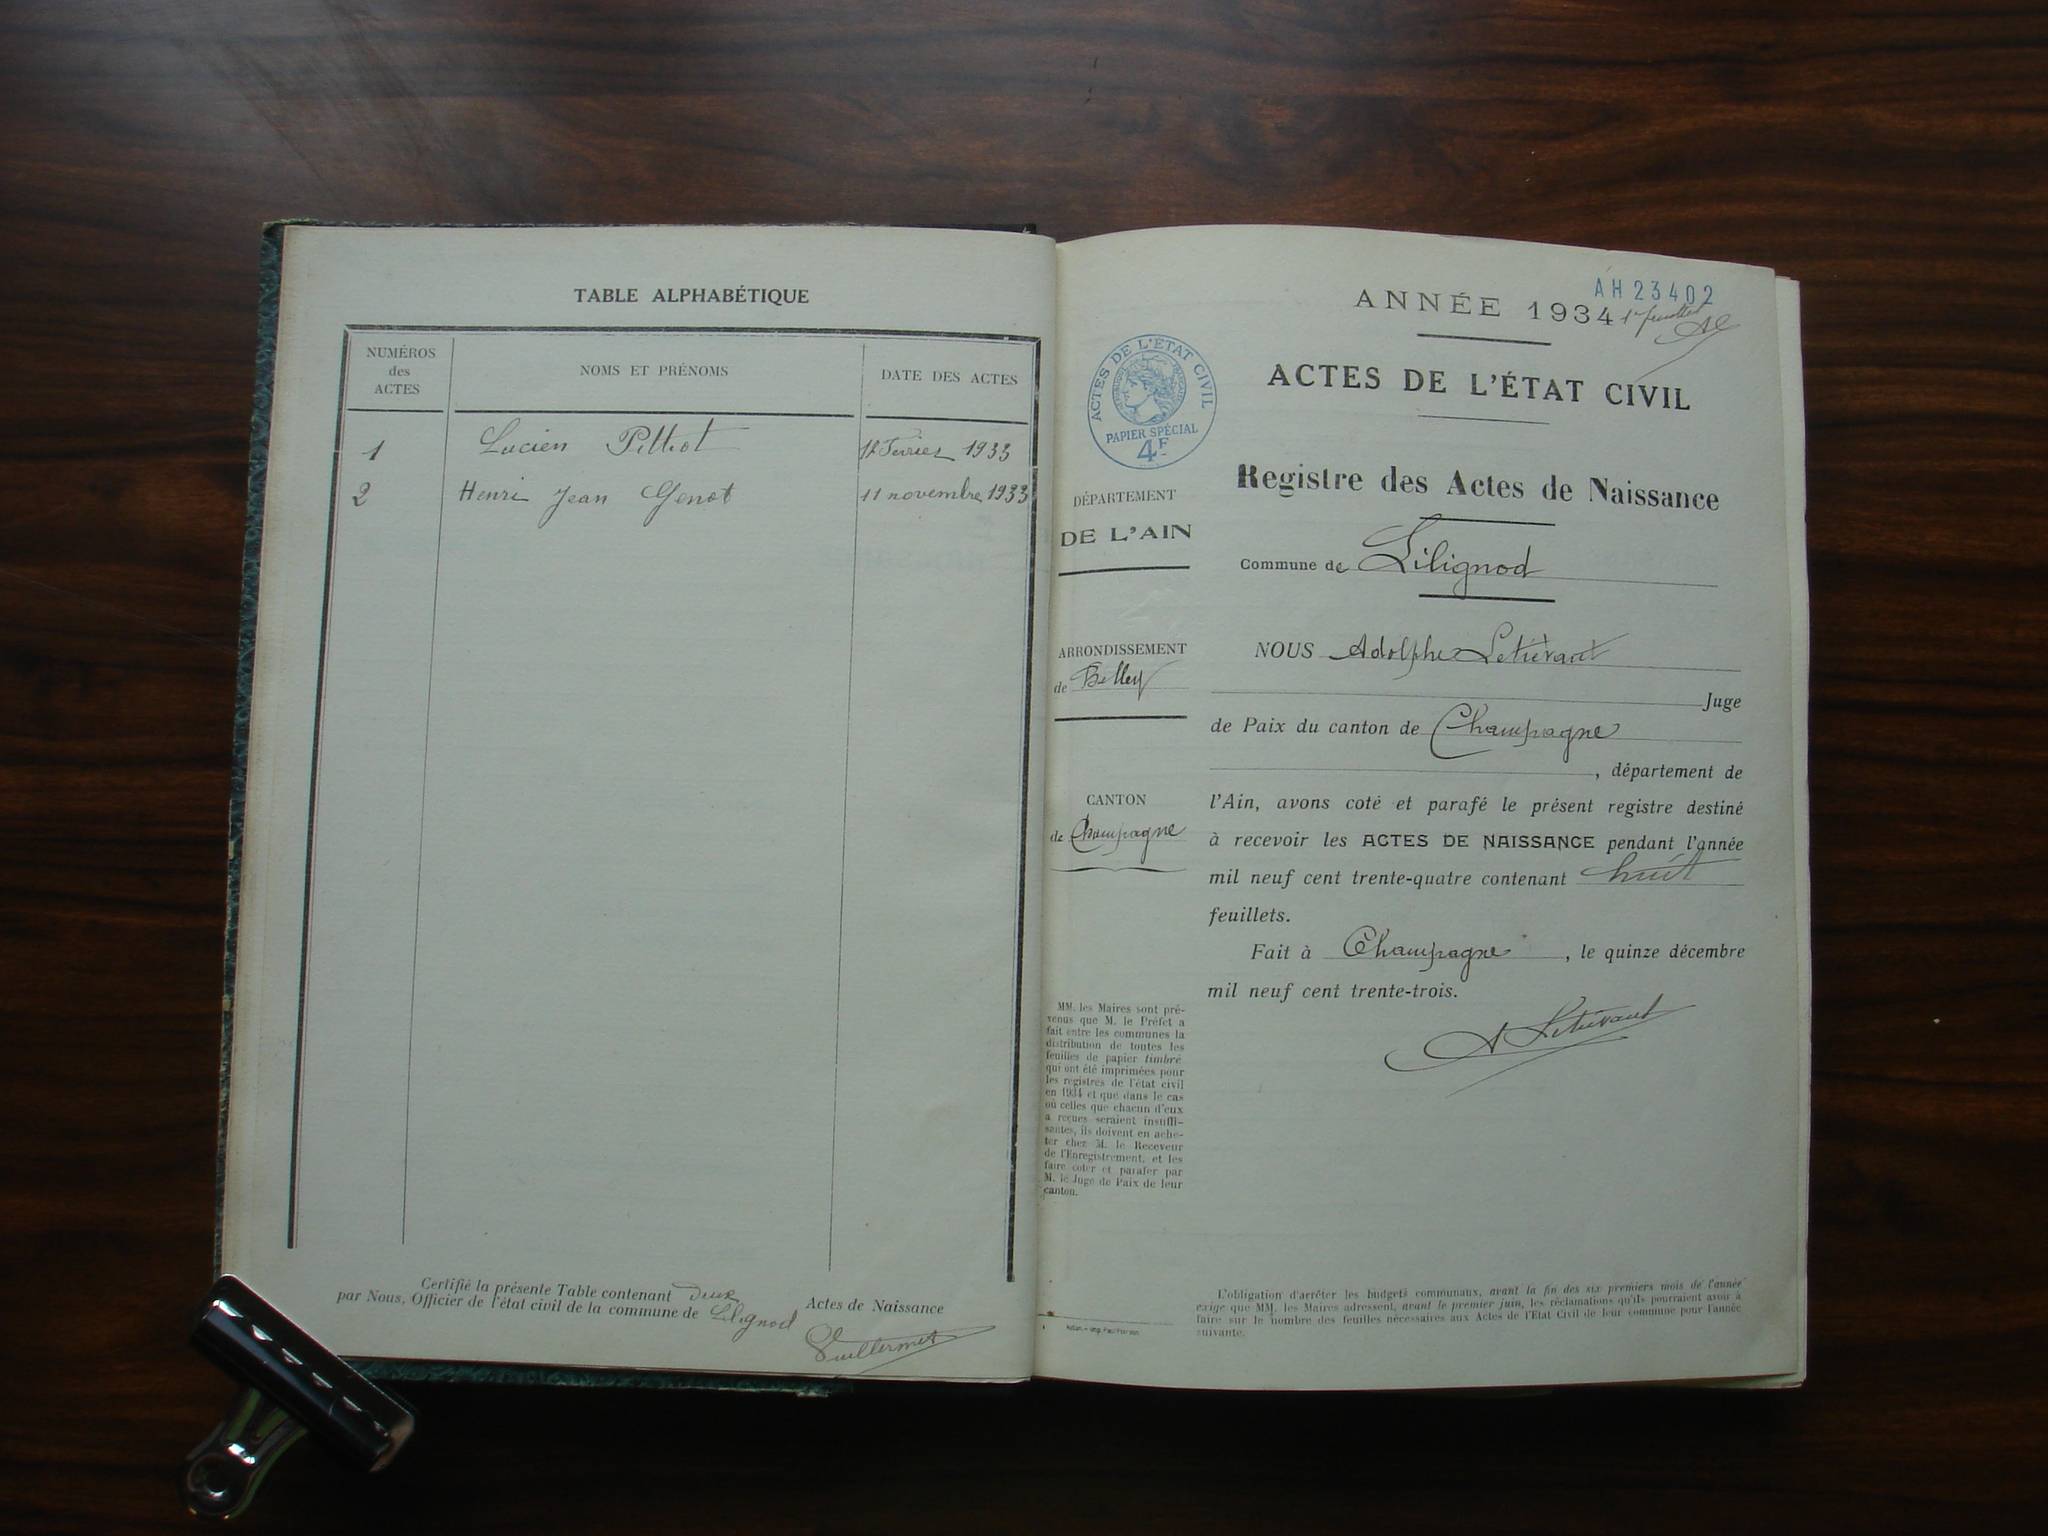 TABLE ALPHABÉTIQUE
NUMÉROS
des
ACTES
NOMS ET PRÉNOMS
DATE DES ACTES
1 Lucien 1933
2 Henri Jean Genot 11 novembre 1933
Certifié la présente Table contenant Deux Actes de Naissance
par Nous, Officier de l'état civil de la commune de Lilignod
AH 23402
ANNÉE 1934
ACTES DE L'ÉTAT CIVIL
ACTES DE L'ÉTAT CIVIL
PAPIER SPÉCIAL
4F
Registre des Actes de Naissance
DÉPARTEMENT
DE L'AIN
Commune de Lilignod
ARRONDISSEMENT
de Belley
CANTON
de Champagne
MM. les Maires sont pré-
venus que M. le Préfet a
fait entre les communes la
distribution de toutes les
feuilles de papier timbré
qui ont été imprimées pour
les registres de l'état civil
en 1934 et que dans le cas
où celles que chacun d'eux
a reçues seraient insuffi-
santes, ils doivent en ache-
ter chez M. le Receveur
de l'Enregistrement, et les
faire coter et parafer par
M. le Juge de Paix de leur
canton.
NOUS Adolphe Letiévant
Juge
de Paix du canton de Champagne
, département de
l'Ain, avons coté et parafé le présent registre destiné
à recevoir les ACTES DE NAISSANCE pendant l'année
mil neuf cent trente-quatre contenant huit
feuillets.
Fait à Champagne, le quinze décembre
mil neuf cent trente-trois.
A Letiévant
L'obligation d'arrêter les budgets communaux, avant la fin des six premiers mois de l'année
exige que MM. les Maires adressent, avant le premier juin, les réclamations qu'ils pourraient avoir à
faire sur le nombre des feuilles nécessaires aux Actes de l'Etat Civil de leur commune pour l'année
suivante.